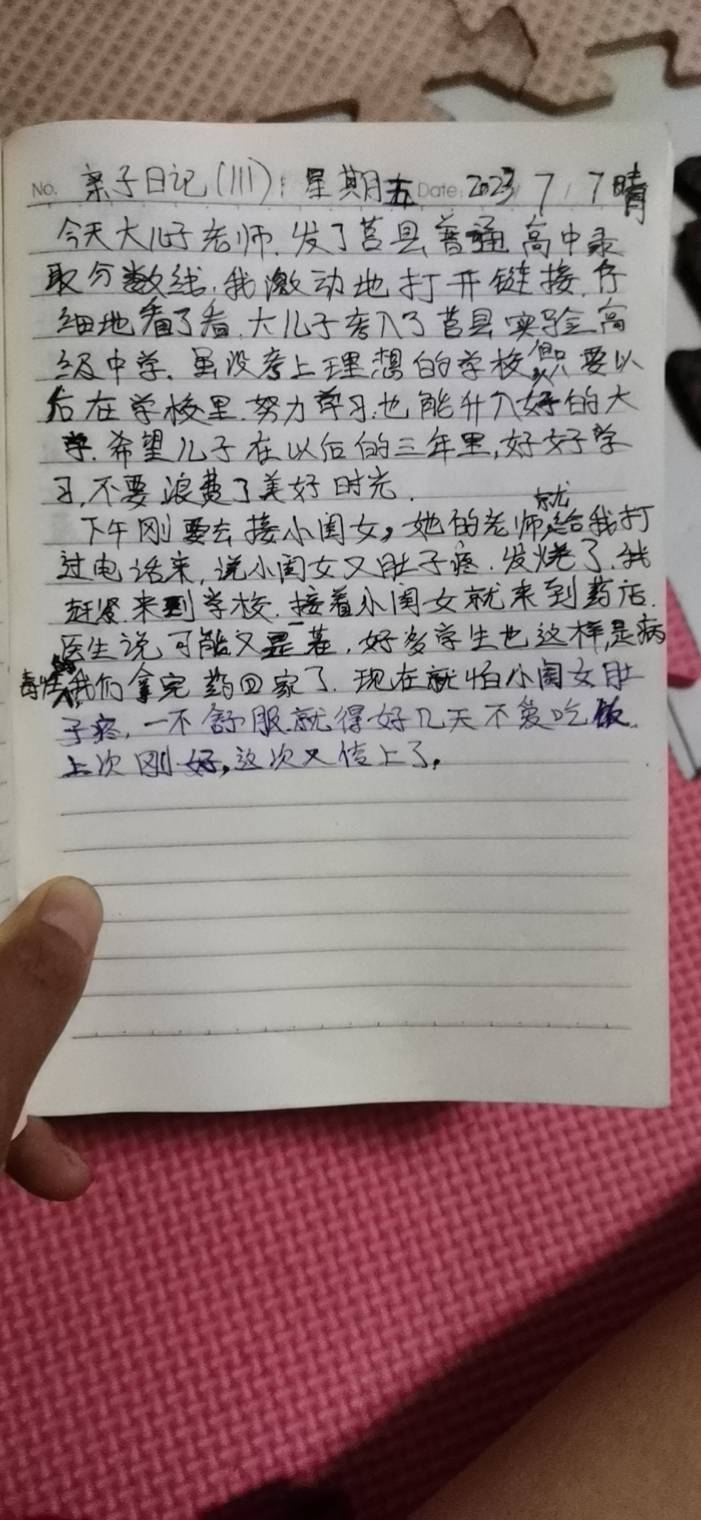 No. 亲子日记(111): 星期五 Date: 2023 / 7 / 7 晴
今天大儿子老师.发了莒县普通高中录
取分数线.我激动地打开链接.仔
细地看了看.大儿子考入了莒县实验高
级中学.虽没考上理想的学校但只要以
后在学校里.努力学习.也能升入好的大
学.希望儿子在以后的三年里,好好学
习,不要浪费了美好时光.
下午刚要去接小闺女,她的老师就给我打
过电话来,说小闺女又肚子疼.发烧了.我
赶紧来到学校.接着小闺女就来到药店.
医生说可能又是着,好多学生也这样,是病
毒性的我们拿完药回家了.现在就怕小闺女肚
子疼,一不舒服.就得好几天不爱吃饭.
上次刚好,这次又传上了.